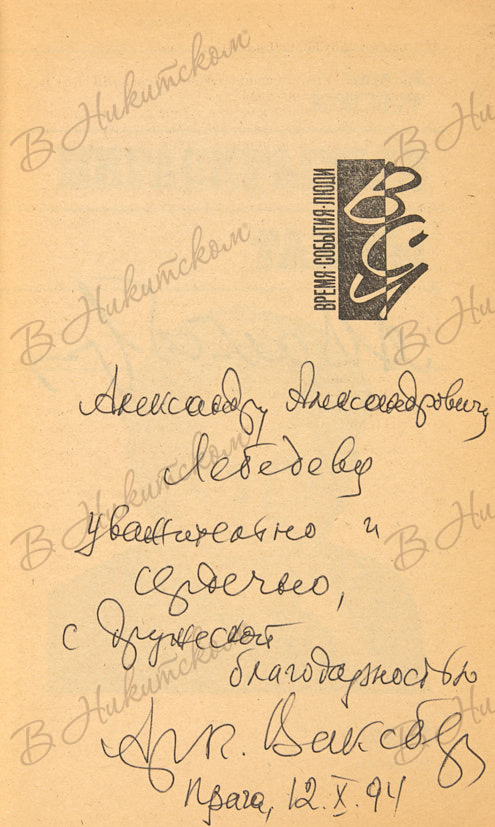 В Никитском
В Никитском
ВРЕМЯ·СОБЫТИЯ·ЛЮДИ
ВСЛ
В Никитском
В Никитском
Александру Александровичу
Лебедеву
уважительно и
сердечно,
с дружеской
благодарностью
Арк. Ваксберг
Прага, 12.X.94
В Никитском
В Никитском
В Никитском
В Никитском